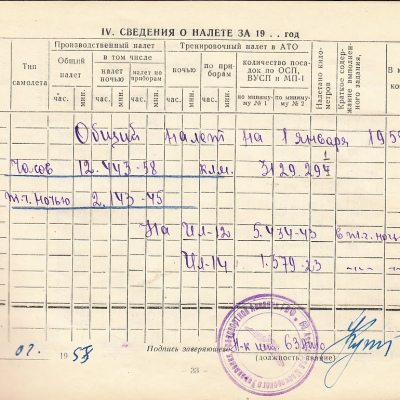 IV. СВЕДЕНИЯ О НАЛЕТЕ ЗА 19 . . год
Тип самолета
Производственный налет
Общий налет
в том числе
налет ночью
налет по приборам
Тренировочный налет в АТО
ночью
по приборам
количество посадок по ОСП, ВУСП и МП-1
по минимуму № 1
по минимуму № 2
Налетано километров
Краткое содержание выполненного задания,
час. мин. час. мин. час. мин. час. мин. час. мин.
Общий налет на 1 января 195
Часов 12.443-58 клм. 3129.297
т.ч. ночью 2.143-45
На Ил-12 5.434-43 в т.ч. ноч
Ил-14 1.579-23 —„—
02. 1958
Подпись заверяющего
(должность, звание)
33